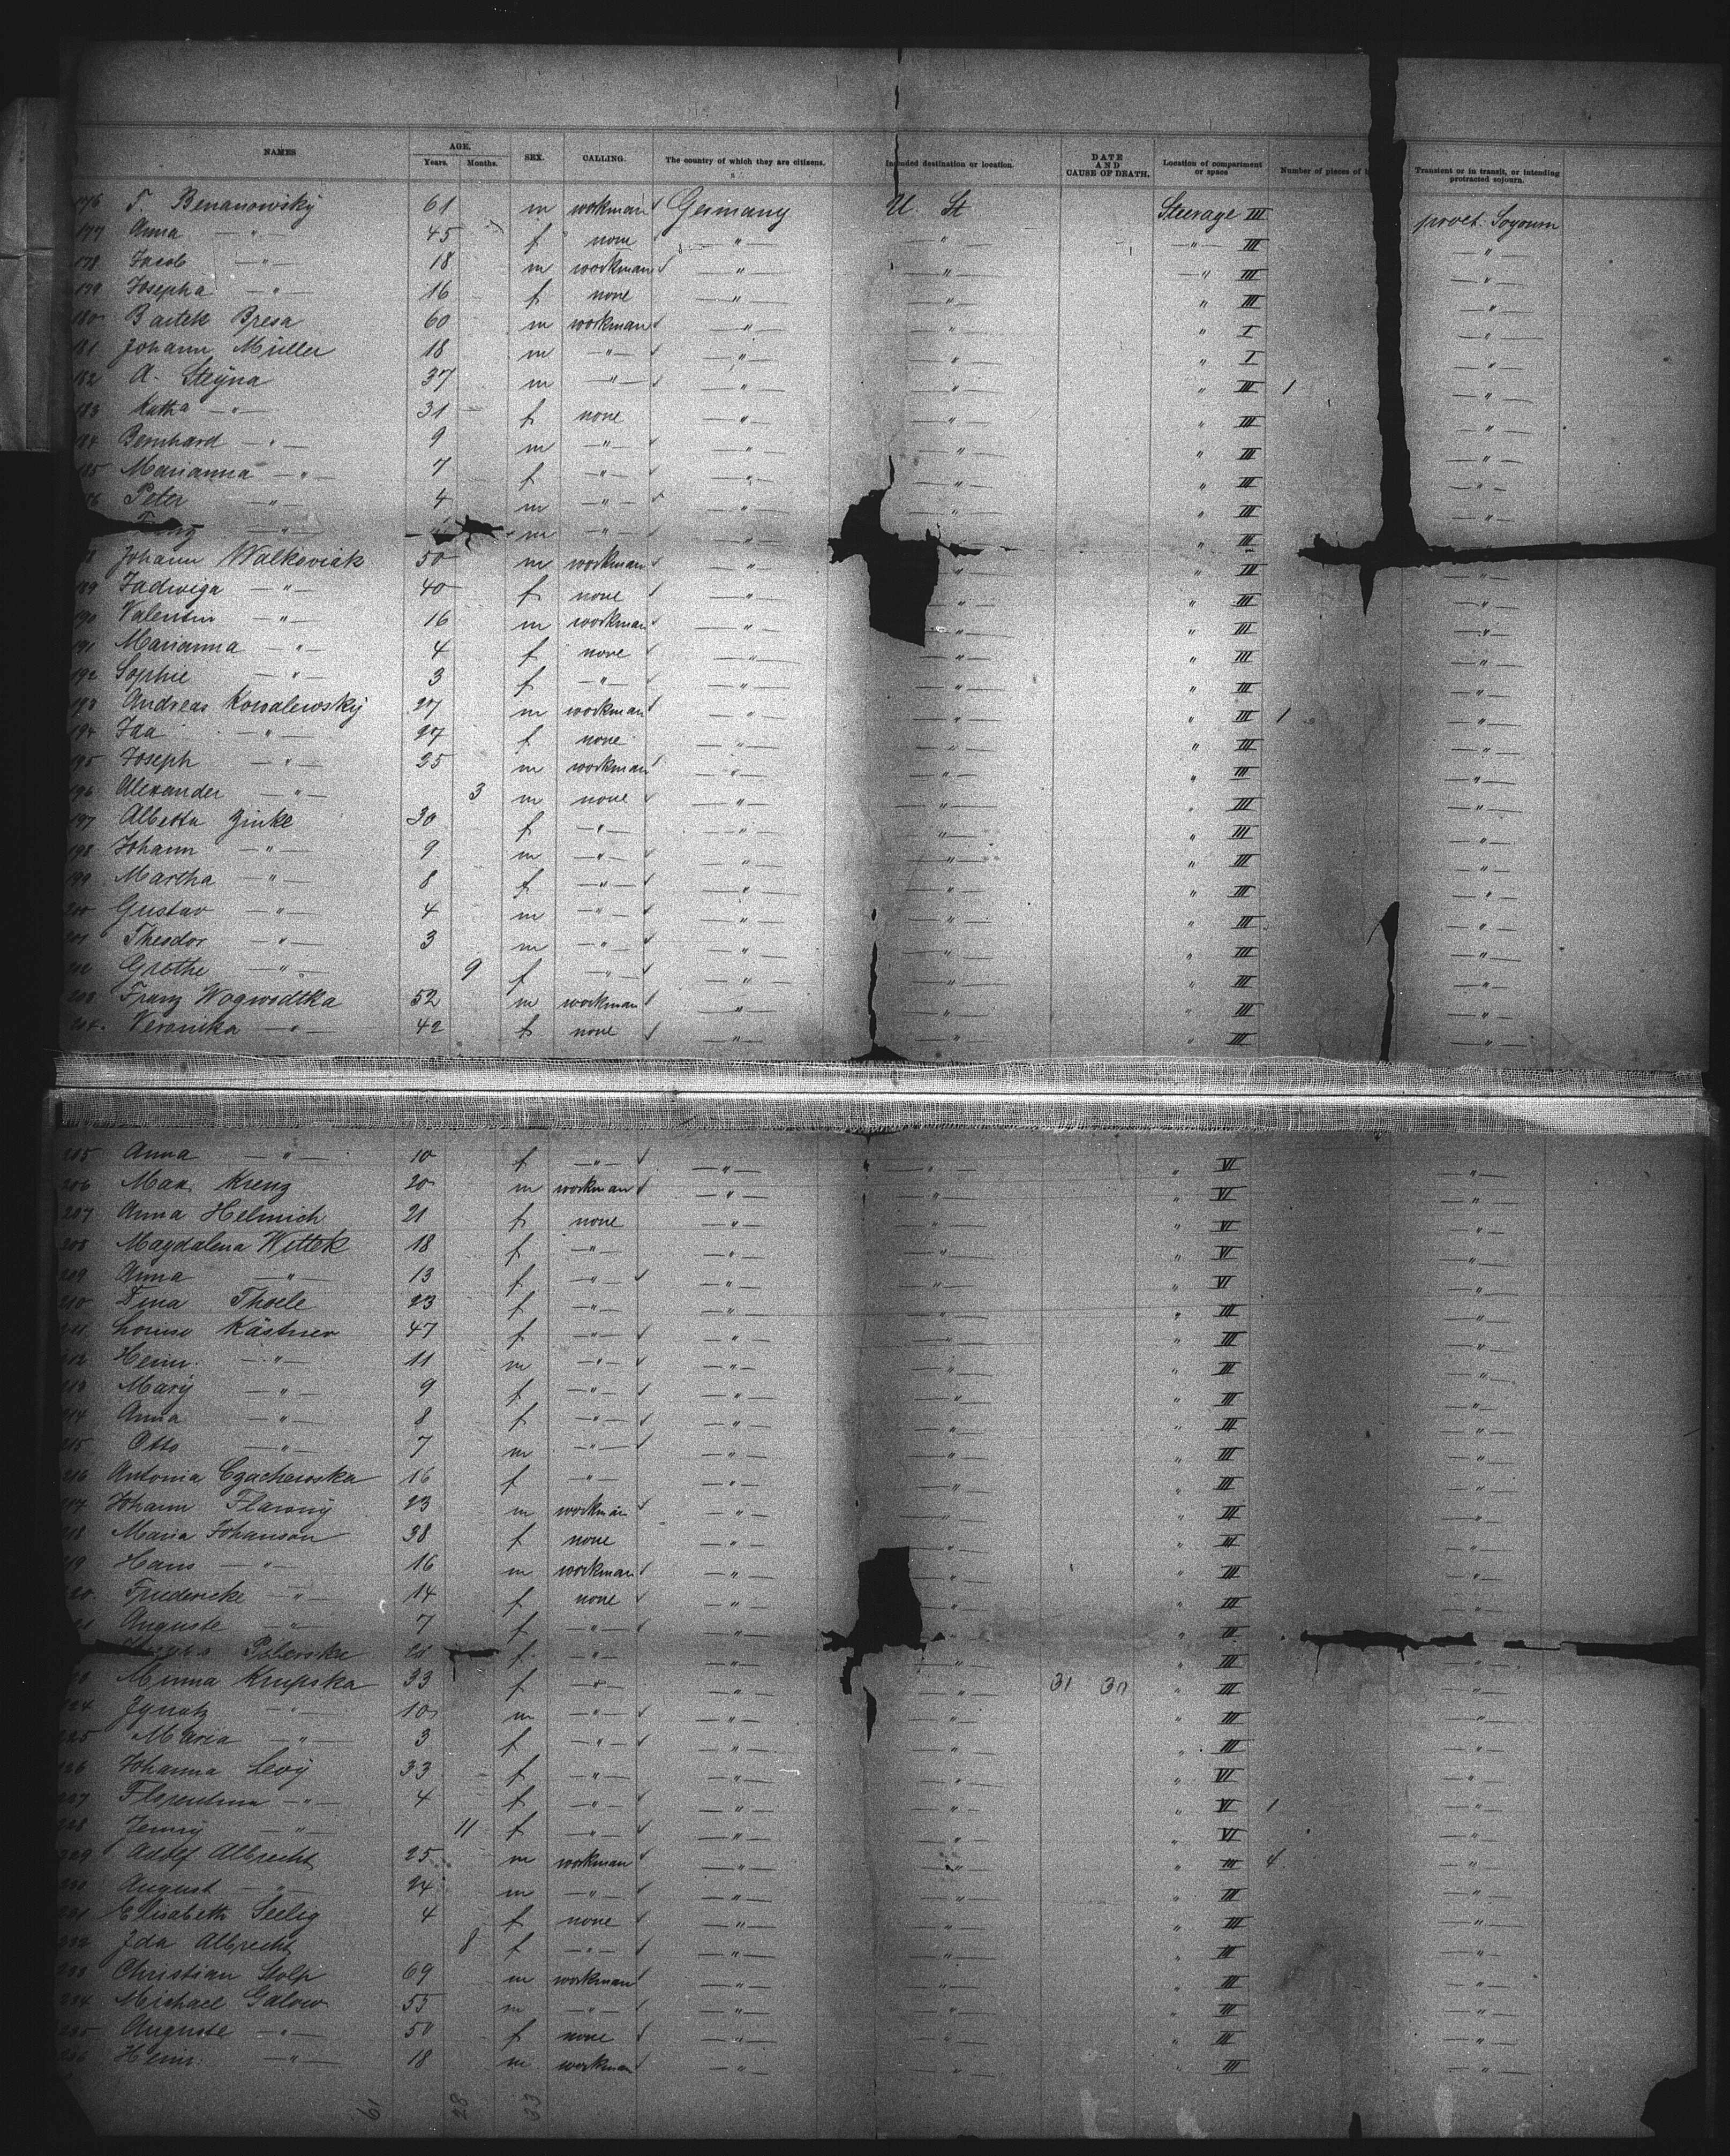 NAMES AGE. Years. Months. SEX. CALLING. The country of which they are citizens. destination or location. DATE AND CAUSE OF DEATH. Location of compartment or space Number of pieces of Transient or in transit, or intending protracted sojourn.
176 T. Benanowsky 61 m workman Germany U. St Steerage III protr. Soyourn
177 Anna —"— 45 f none —"— " —"— III —"—
178 Jacob —"— 18 m workman —"— —"— —" III —"—
179 Josepha —"— 16 f none —"— —"— " III —"—
180 Bartek Bresa 60 m workman —"— —"— " I —"—
181 Johann Müller 18 m —"— —"— —"— " I —"—
182 A. Steyna 37 m —"— —"— —"— " III 1 —"—
183 Katha —"— 31 f none —"— —"— " III —"—
184 Bernhard —"— 9 m —"— —"— —"— " III —"—
185 Marianna —"— 7 f —"— —"— —"— " III —"—
Peter —"— 4 m —"— —"— —"— " III —"—
—"— m —"— —"— " III
Johann Walkoviak 50 m workman —"— —"— III —"—
189 Jadwiga —"— 40 f none —"— —"— " III —"—
190 Valentin —"— 16 m workman —"— —"— " III —"—
191 Marianna —"— 4 f none —"— —"— " III —"—
192 Sophie —"— 3 f —"— —"— —"— " III —"—
193 Andreas Kowalewsky 27 m workman —"— —"— " III 1 —"—
194 Ida —"— 27 f none —"— —"— " III —"—
195 Joseph —"— 25 m workman —"— —"— " III —"—
196 Alexander —"— 3 m none —"— —"— " III —"—
197 Alberta Zinke 30 f —"— —"— —"— " III —"—
198 Johann —"— 9 m —"— —"— —"— " III —"—
199 Martha —"— 8 f —"— —"— —"— " III —"—
200 Gustav —"— 4 m —"— —"— —"— " III —"—
201 Theodor —"— 3 m —"— —"— —"— " III —"—
202 Grethe —"— 9 f —"— —"— —"— " III —"—
203 Franz Wogwodtka 52 m workman —"— —"— " III —"—
204 Veronika —"— 42 f none —"— —"— " III —"—
205 Anna —"— 10 f —"— —"— —"— " VI —"—
206 Max Kreng 20 m workman —"— —"— " VI —"—
207 Anna Helmich 21 f none —"— —"— " VI —"—
208 Magdalena Wittek 18 f —"— —"— —"— " VI —"—
209 Anna —"— 13 f —"— —"— —"— " VI —"—
210 Dina Thoele 23 f —"— —"— —"— " III —"—
211 Louise Kästner 47 f —"— —"— —"— " III —"—
212 Heinr. —"— 11 m —"— —"— —"— " III —"—
213 Mary —"— 9 f —"— —"— —"— " III —"—
214 Anna —"— 8 f —"— —"— —"— " III —"—
215 Otto —"— 7 m —"— —"— —"— " III —"—
216 Antonia Czachewska 16 f —"— —"— —"— " III —"—
217 Johann Flawny 23 m workman —"— —"— " III —"—
218 Maria Johanson 38 f none —"— —"— " III —"—
219 Hans —"— 16 m workman —"— —"— " III —"—
220 Fridericke —"— 14 f none —"— —"— " III —"—
Auguste —"— 7 f —"— —"— " III —"—
f —"— —"— " III —"—
Minna Krupska 33 f —"— —"— —"— 31 30 " III —"—
224 Ignatz —"— 10 m —"— —"— —"— " III —"—
225 Maria —"— 3 f —"— —"— —"— " III —"—
226 Johanna Levy 33 f —"— —"— —"— " VI —"—
227 Florentina —"— 4 f —"— —"— —"— " VI 1 —"—
228 Jenny —"— 11 f —"— —"— —"— " VI —"—
229 Adolf Albrecht 25 m workman —"— —"— " III 4 —"—
230 August —"— 24 m —"— —"— —"— " III —"—
231 Elisabeth Seelig 4 f none —"— —"— " III —"—
232 Ida Albrecht 8 f —"— —"— —"— " III —"—
233 Christian Stolp 69 m workman —"— —"— " III —"—
234 Michael Galow 55 m —"— —"— —"— " III —"—
235 Auguste —"— 50 f none —"— —"— " III —"—
236 Heinr. —"— 18 m workman —"— —"— " III —"—
61 28 33